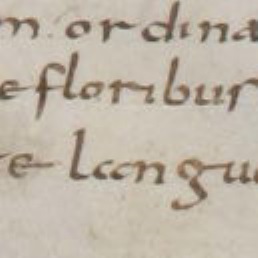 m ordina
e floribus
re longu